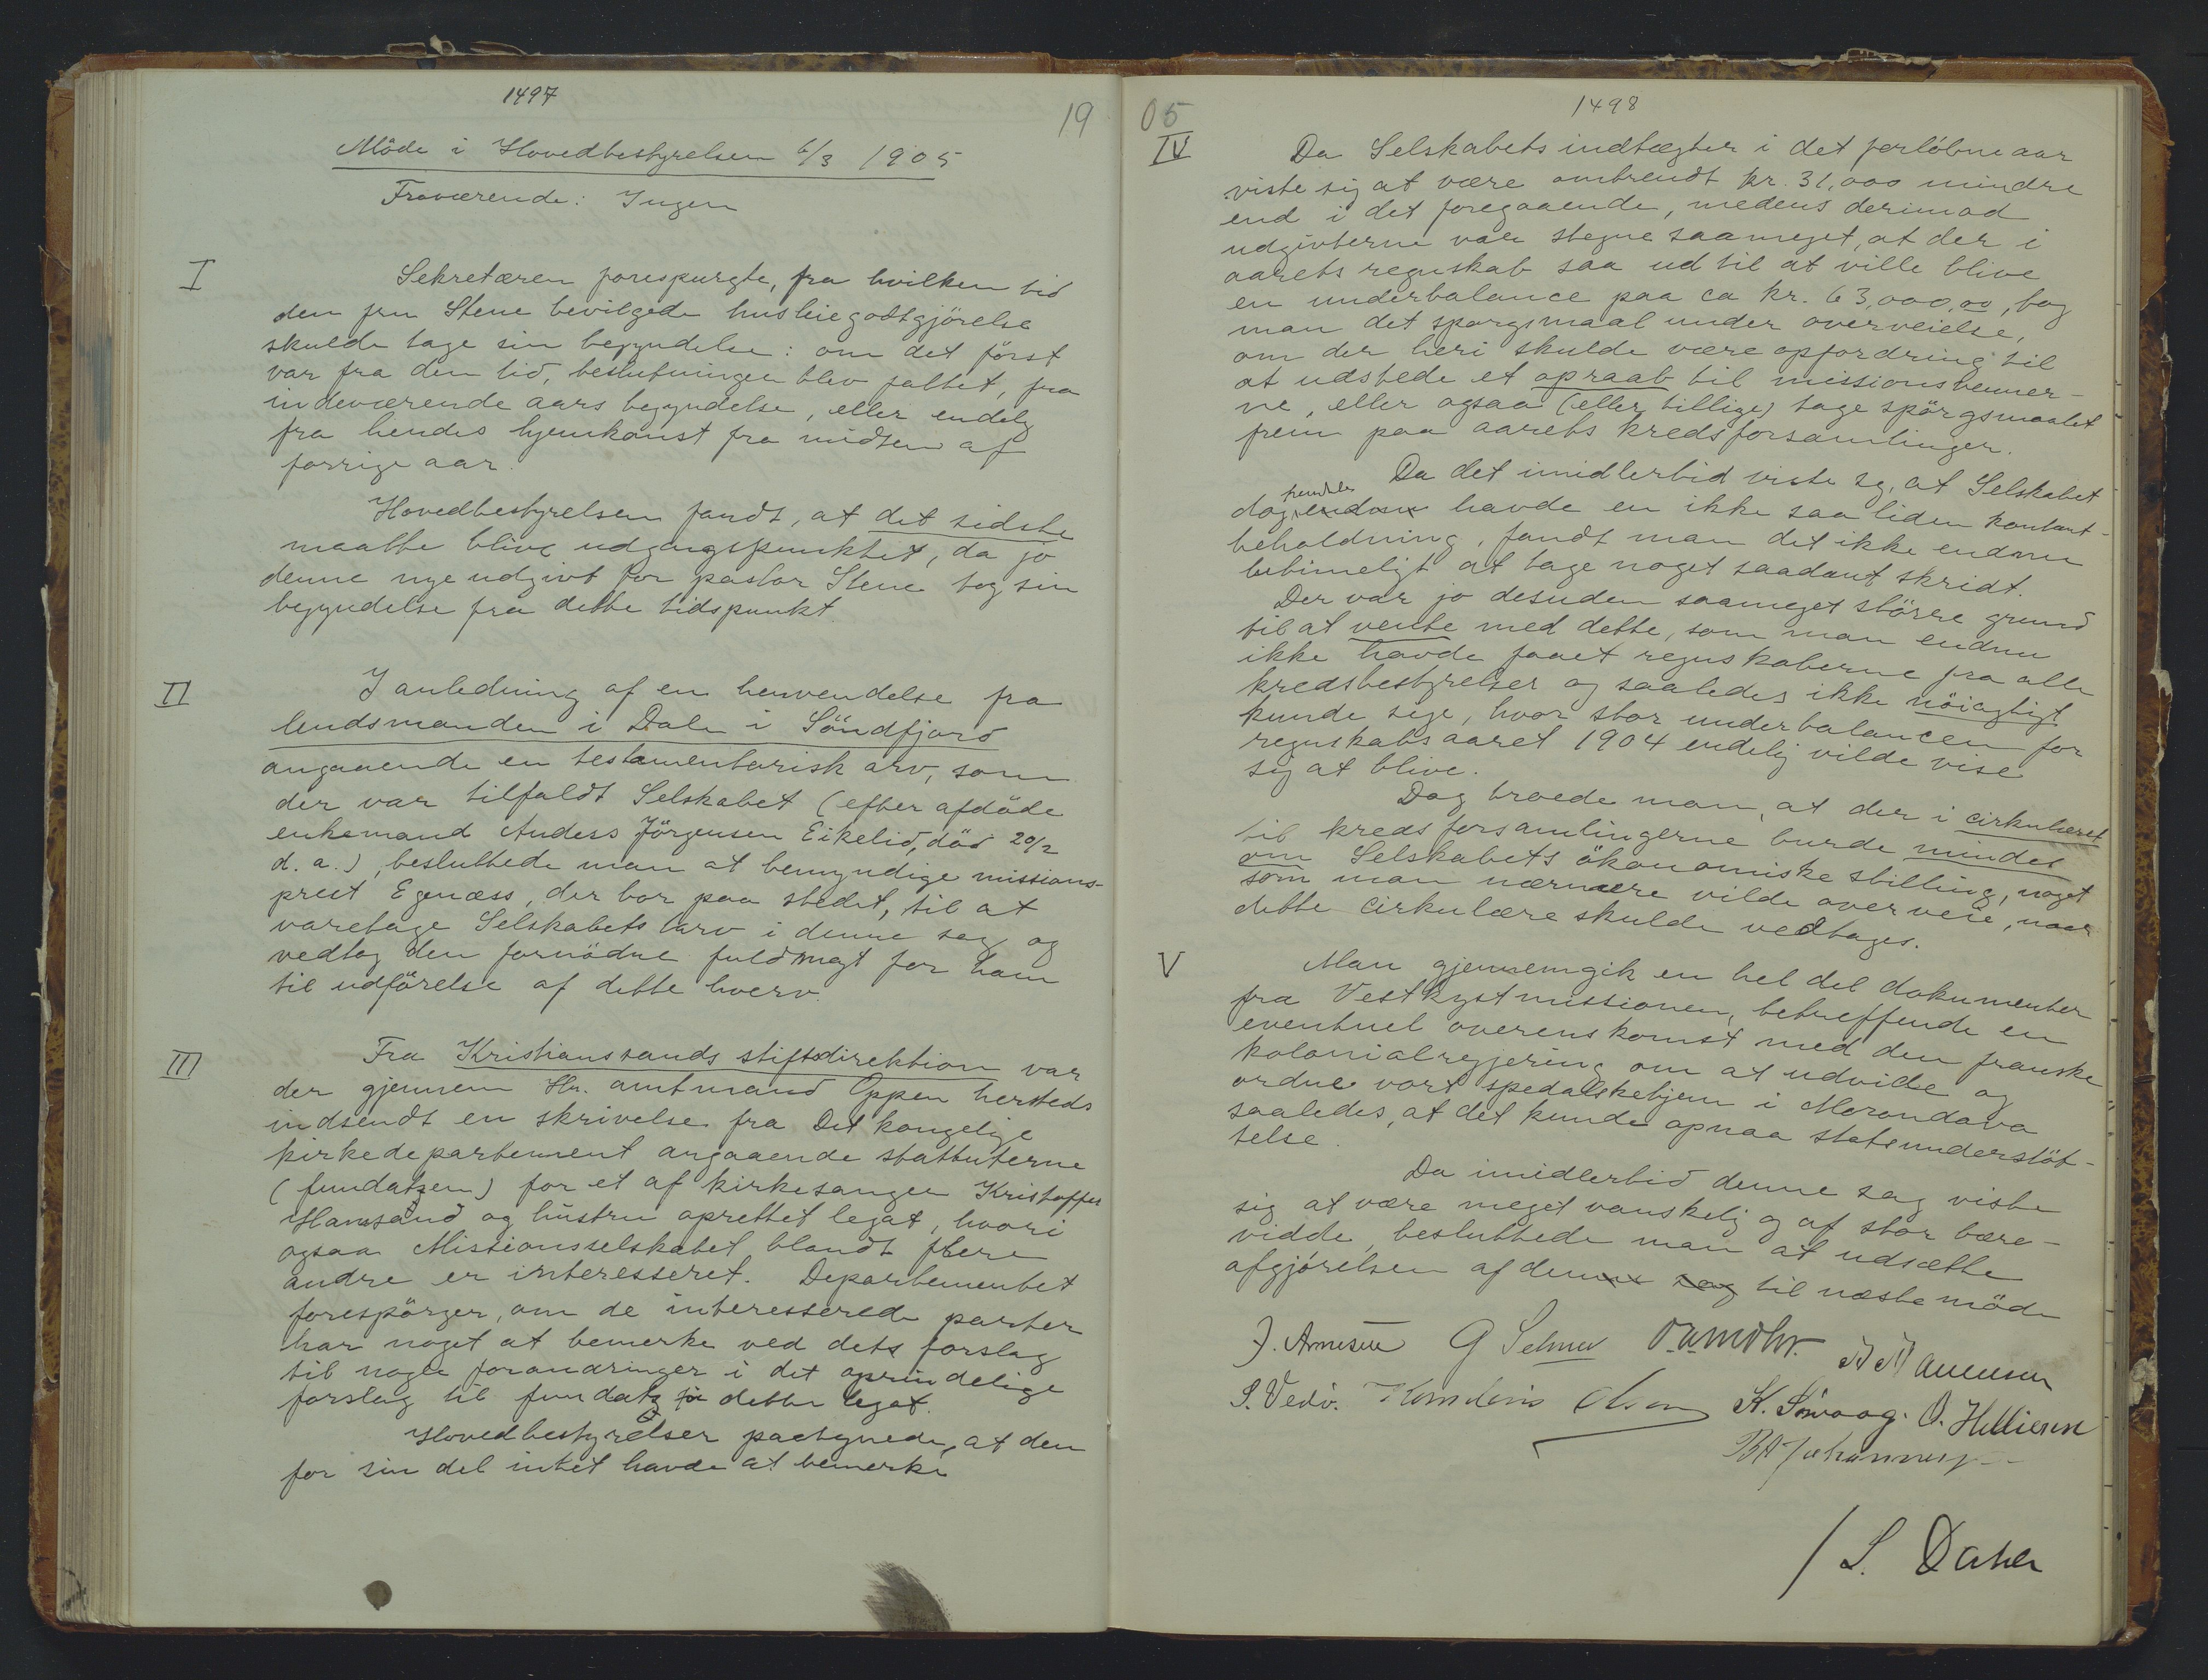 1497
19
Møde i Hovedbestyrelsen 6/3 1905
Fraværende: Ingen
I
Sekretæren forespurgte, fra hvilken tid
den fru Stene bevilgede husleiegodtgjörelse
skulde tage sin begyndelse: om det först
var fra den tid, beslutningen blev fattet, fra
indeværende aars begyndelse, eller endelig
fra hendes hjemkomst fra midten af
forrige aar.
Hovedbestyrelsen fandt, at det sidste
maatte blive udgangspunktet, da jo
denne nye udgivt for pastor Stene tog sin
begyndelse fra dette tidspunkt.
II
I anledning af en henvendelse fra
lendsmanden i Dale i Söndfjord
angaaende en testamentarisk arv, som
der var tilfaldt Selskabet (efter afdöde
enkemand Anders Jörgensen Eikelid, död 20/2
d. a.), besluttede man at bemyndige missions-
prest Egenæss, der bor paa stedet, til at
varetage Selskabets tarv i denne sag og
vedtog den fornödne fuldmagt for ham
til udförelse af dette hverv.
III
Fra Kristianssands stiftsdirektion var
der gjennem Hr. amtmand Oppen hersteds
indsendt en skrivelse fra Det kongelige
kirkedepartement angaaende statuterne
(fundatsen) for et af kirkesanger Kristoffer
Hanssand og hustru oprettet legat, hvori
ogsaa Missionsselskabet blandt flere
andre er interesseret. Departementet
forespörger, om de interesserede parter
har noget at bemerke ved dets forslag
til nogle forandringer i det oprindelige
forslag til fundats for dette legat.
Hovedbestyrelsen paategnede, at den
for sin del intet havde at bemerke
1498
05
IV
Da Selskabets indtægter i det forløbne aar
viste sig at være omtrendt kr. 31,000 mindre
end i det foregaaende, medens derimod
udgivterne var stegne saameget, at der i
aarets regnskab saa ud til at ville blive
en underbalance paa ca kr. 63,000,00, tog
man det spørgsmaal under overveielse,
om der heri skulde være opfordring til
at udstede et opraab til missionsvenner-
ne, eller ogsaa (eller tillige) tage spörgsmaalet
frem paa aarets kredsforsamlinger.
Da det imidlertid viste sig, at Selskabet
fremdeles
dog endnu havde en ikke saa liden kontant-
beholdning, fandt man det ikke endnu
betimeligt at tage noget saadant skridt.
Der var jo desuden saameget större grund
til at vente med dette, som man endnu
ikke havde faaet regnskaberne fra alle
kredsbestyrelser og saaledes ikke nöiagtigt
kunde sige, hvor stor underbalancen for
regnskabsaaret 1904 endelig vilde vise
sig at blive.
Dog troede man, at der i cirkulæret
til kredsforsamlingerne burde mindes
om Selskabets ökonomiske stilling, noget
som man nærmere vilde overveie, naar
dette cirkulære skulde vedtages.
V
Man gjennemgik en hel del dokumenter
fra Vestkystmissionen, betreffende en
eventuel overenskomst med den franske
kolonialregjering om at udvide og
ordne vort spedalskehjem i Morondava
saaledes, at det kunde opnaa statsunderstöt-
telse.
Da imidlertid denne sag viste
sig at være meget vanskelig og af stor bære-
vidde, besluttede man at udsætte
afgjörelsen af denne sag til næste möde
J. Arnesen G Selmer
S. Vedö. Olsen K. Sövaag. O. Helliesen
B A Johannesen
/ L. Dahle